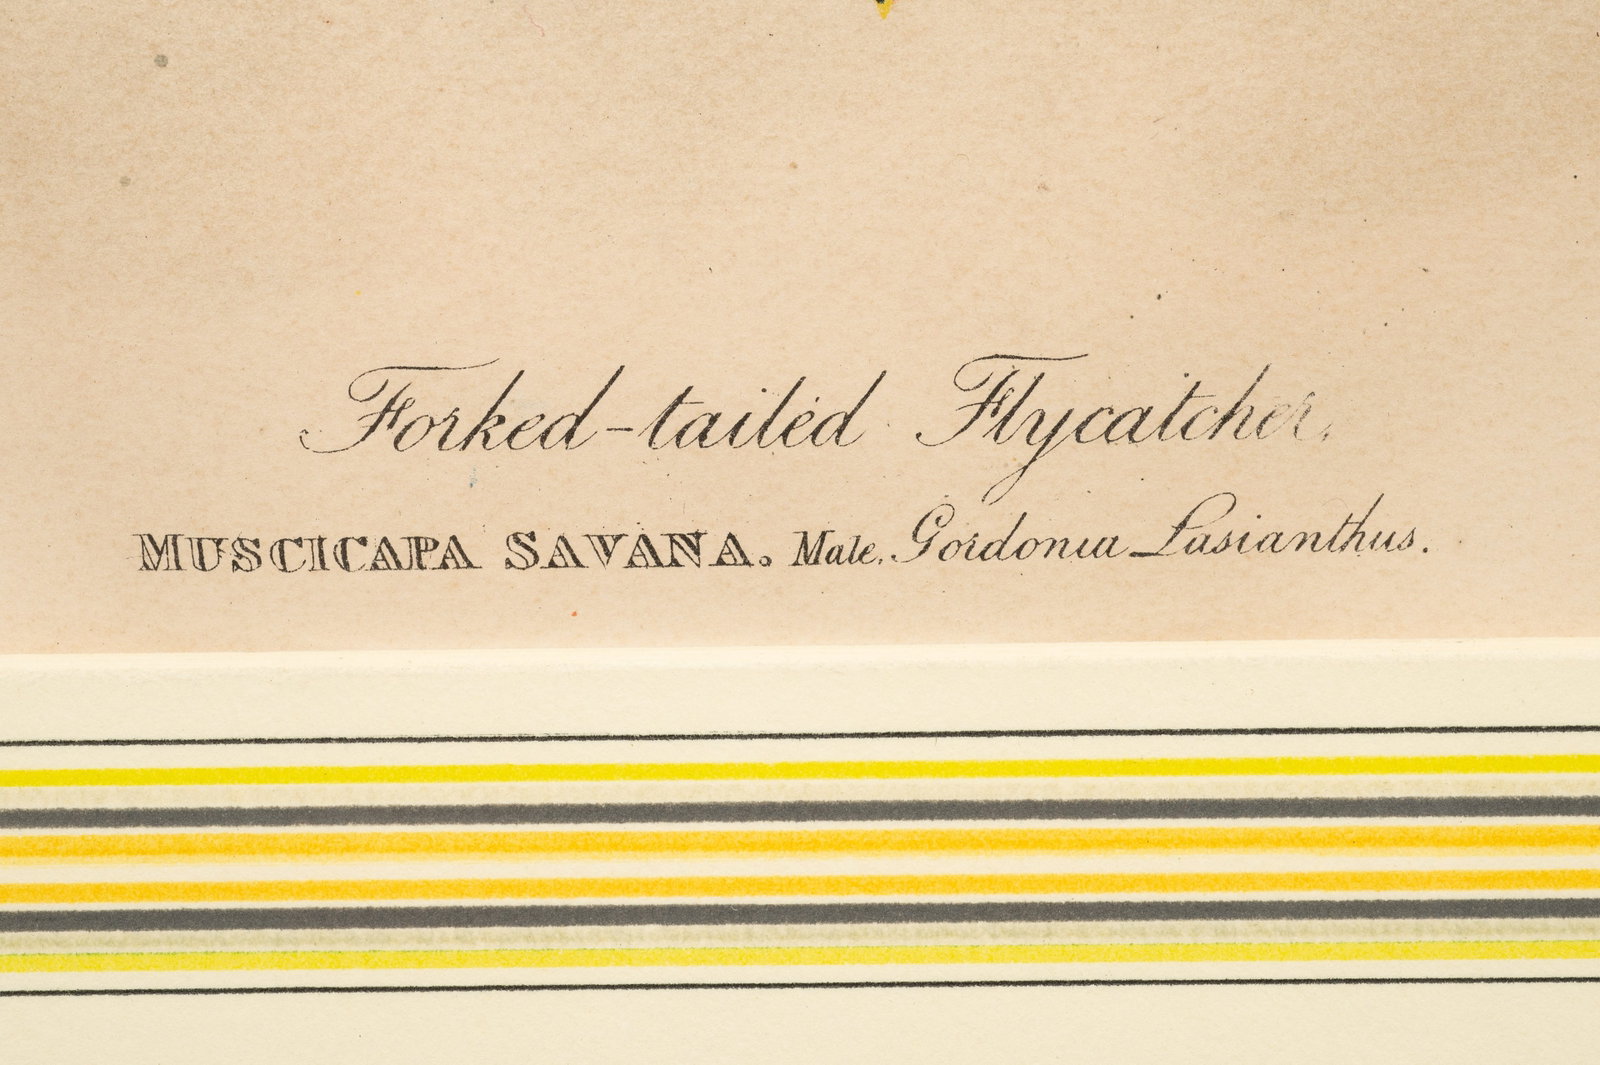 Forked-tailed Flycatcher.
MUSCICAPA SAVANA. Male. Gordonia Lasianthus.